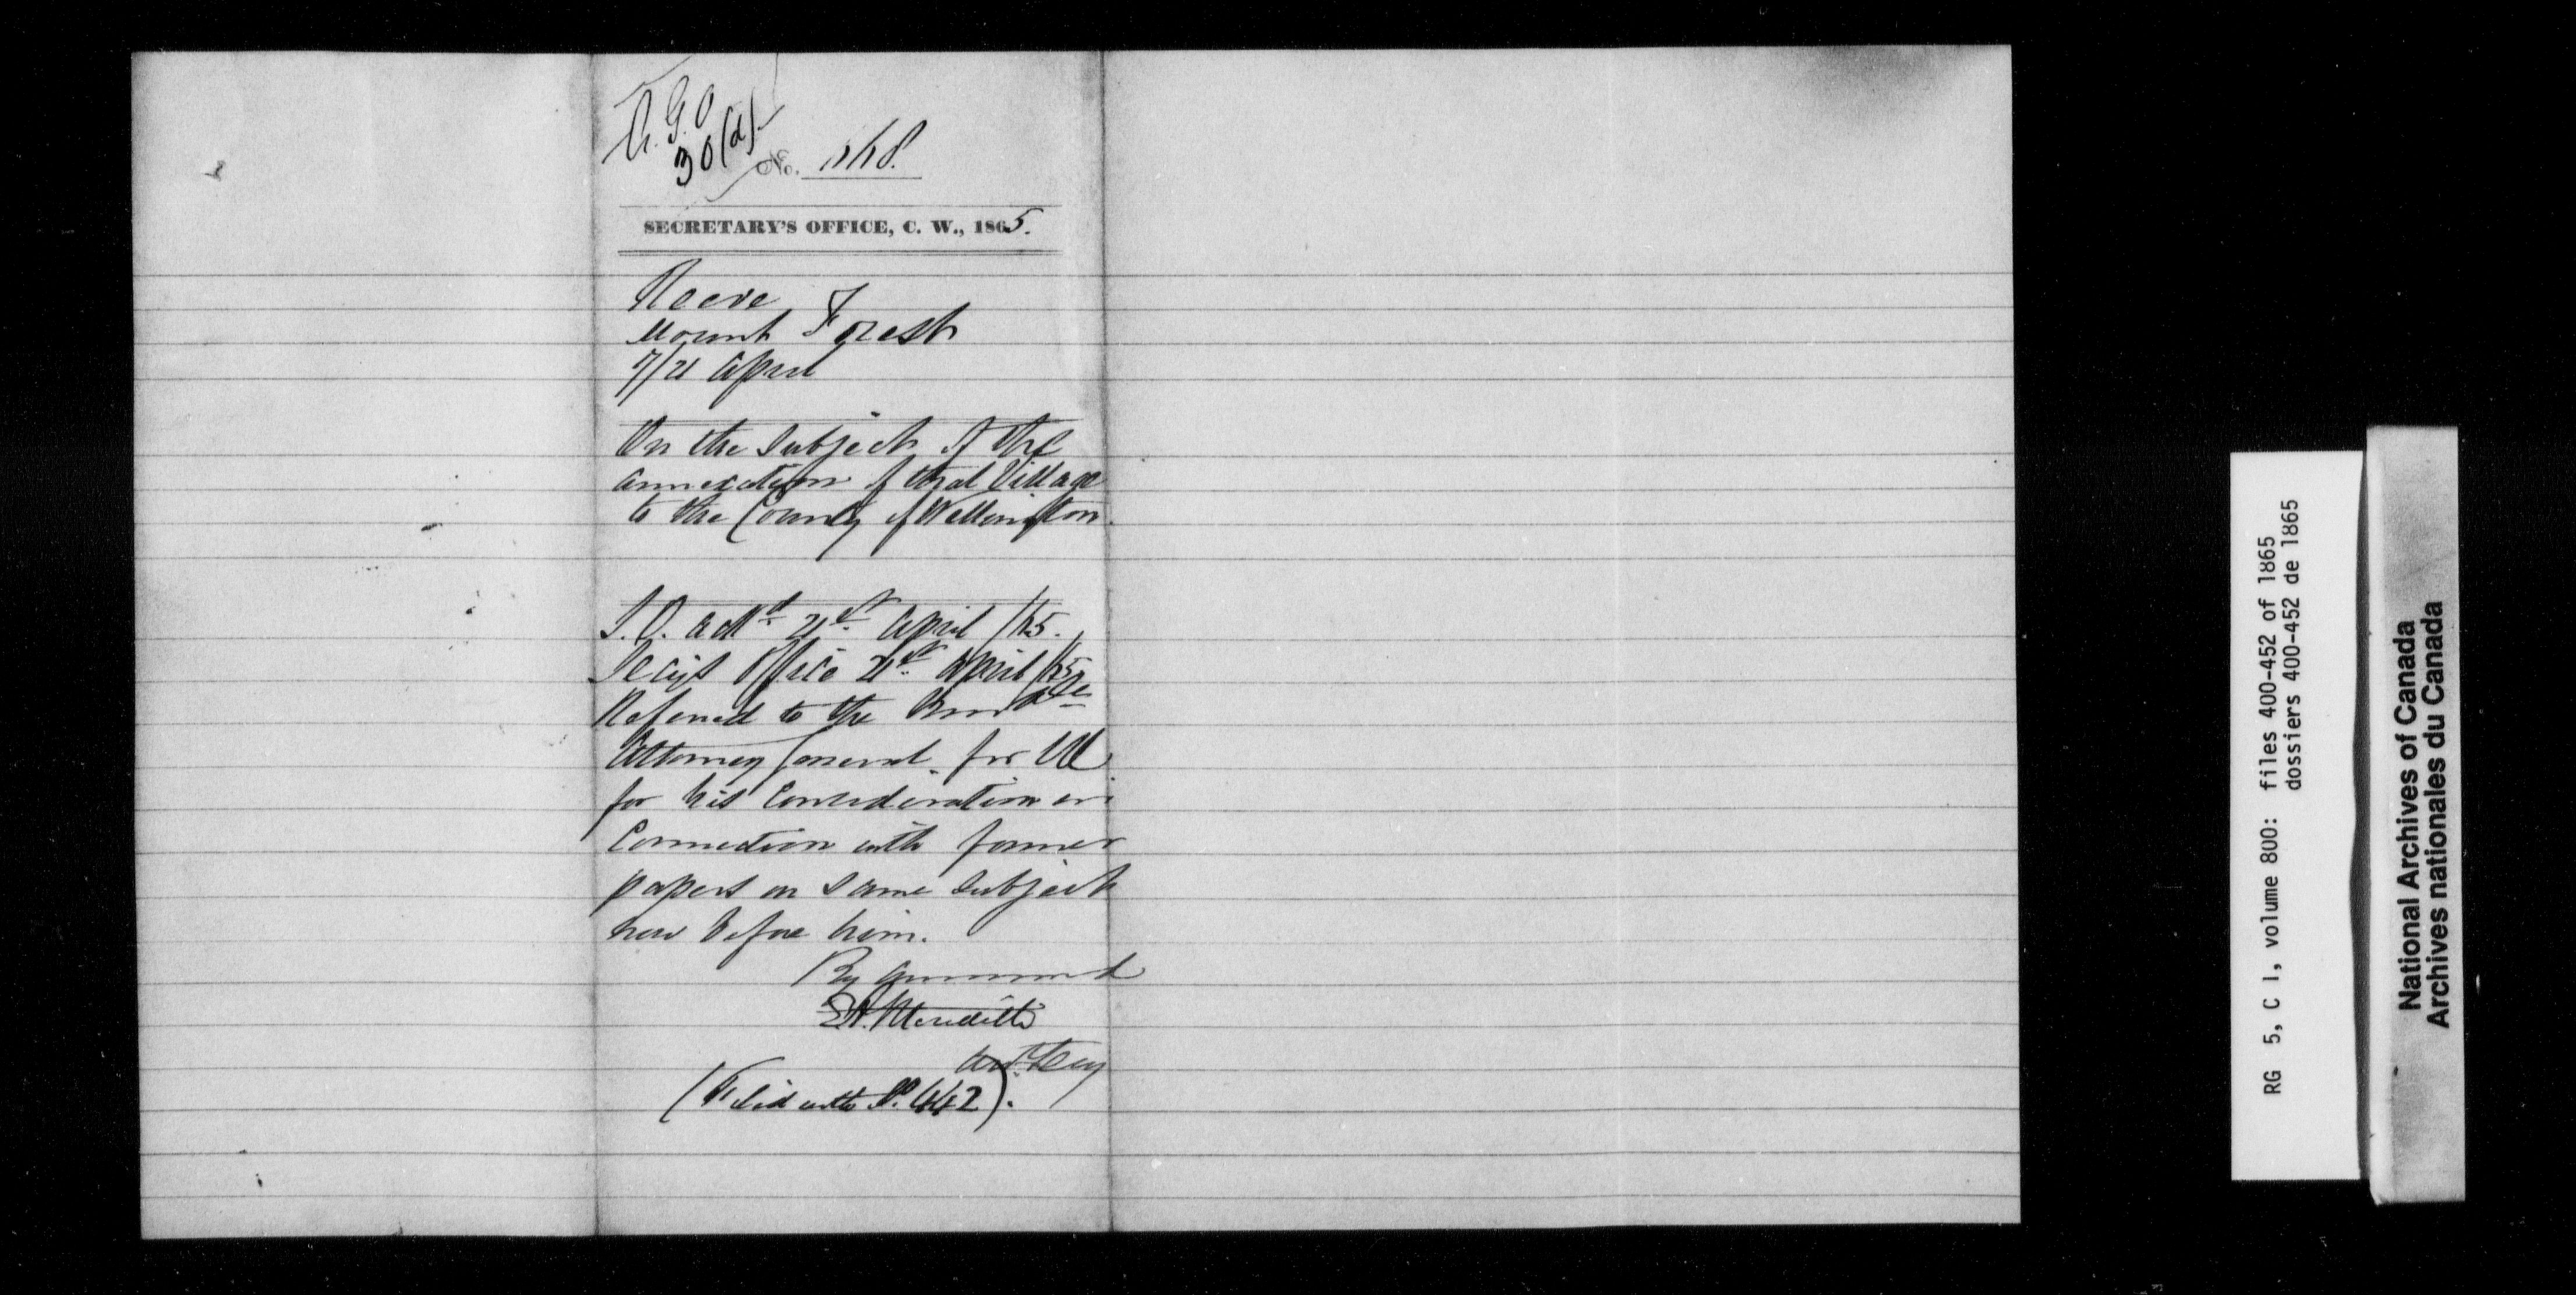 A.G.O
30(d)
No.
SECRETARY'S OFFICE, C. W., 1865.
Reeve
Mount Forest
7/21 April
On the subject of the
annexation of that Village
to the County of Wellington
S.O. ackd 21st April /65.
Secy's Office 21st April /65
Referred to the Honble
Attorney General for UC
for his consideration in
connection with former
papers on same subject
now before him.
By command
E A. Meredith
Asst Secy
(Filed with No. 442).
RG 5, C 1, volume 800: files 400-452 of 1865
dossiers 400-452 de 1865
National Archives of Canada
Archives nationales du Canada